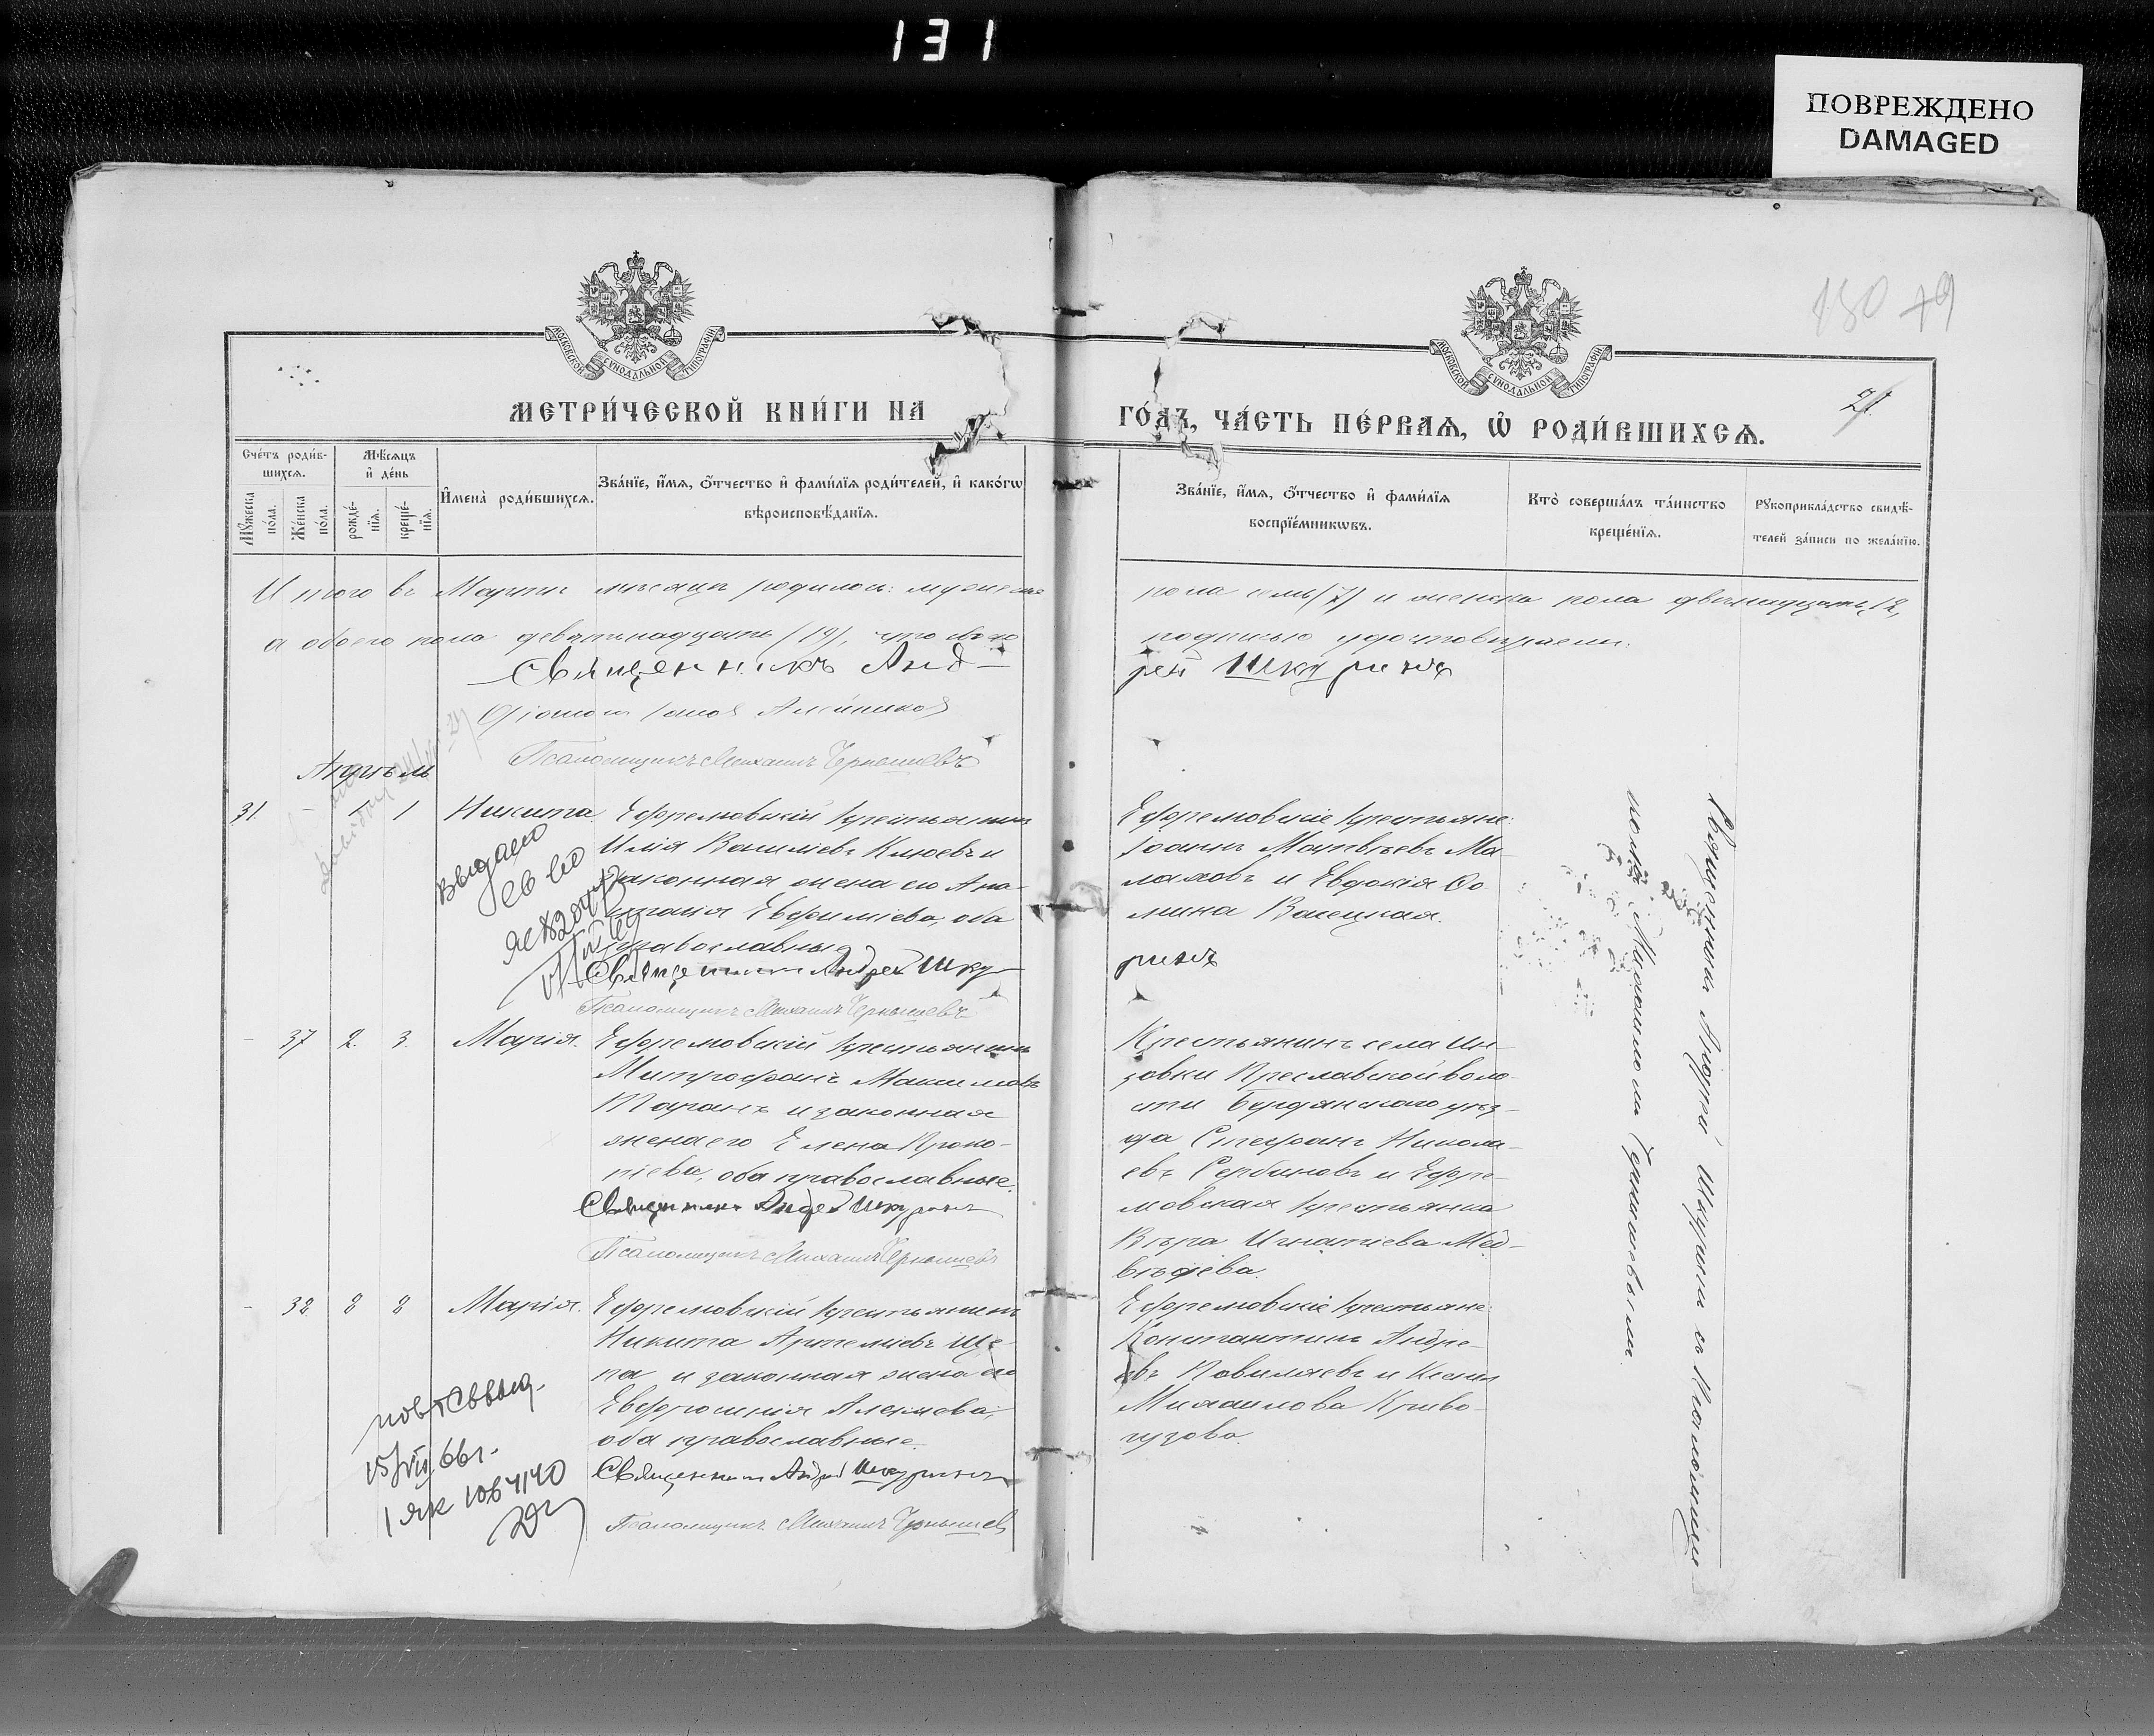 131
ПОВРЕЖДЕНО
DAMAGED
МОСКОВСКОЙ СУНОДАЛЬНОЙ ТИПОГРАФІИ
МОСКОВСКОЙ СУНОДАЛЬНОЙ ТИПОГРАФІИ
МЕТРИ́ЧЕСКОЙ КНИ́ГИ НА
ГО́ДЪ, ЧА́СТЬ ПЕ́РВАѦ, Ѡ҆ РОДИ́ВШИХСѦ.
Сче́тъ роди́в-
шихсѧ.
Мꙋ́жеска по́ла.
Же́нска по́ла.
Мѣ́сѧцъ
и҆ де́нь
рожде́-
нїѧ.
креще́-
нїѧ.
И҆мена̀ роди́вшихсѧ.
Зва́нїе, и҆́мѧ, ѻ҆́тчество и҆ фами́лїѧ роди́телей, и҆ како́гѡ
вѣроисповѣ́данїѧ.
Зва́нїе, и҆́мѧ, ѻ҆́тчество и҆ фами́лїѧ
воспрїе́мникѡвъ.
Кто̀ соверша́лъ та́инство
креще́нїѧ.
Рꙋкоприкла́дство свидѣ́-
телей за́писи по жела́нїю.
Итого въ Мартѣ мѣсяцѣ родилось: мужеска
пола семь (7) и женска пола двѣнадцать 12,
а обоего пола девятнадцать (19), что свою
подписью удостовѣряемъ:
Священникъ Анд-
рей Шкуринъ
Псаломщикъ Михаилъ Чернышевъ
Апрѣль
31. - 1 1 Никита.
Ефремовскій крестьянинъ
Илія Василіевъ Клюевъ и
законная жена его Ана-
Евфиміева, оба
православные
Священникъ Андрей Шку-
ринъ
Псаломщикъ Михаилъ Чернышевъ
Ефремовскіе крестьяне:
Іоаннъ Матвѣевъ Ма-
лаховъ и Евдокія Ѳо-
мина
Выдано
св во
- 37 2. 3. Марія.
Ефремовскій крестьянинъ
Митрофанъ Максимовъ
Таранъ и законная
жена его Елена Проко-
піева, оба православные.
Священникъ Андрей Шкуринъ
Псаломщикъ Михаилъ Чернышевъ
Крестьянинъ села Ин-
зовки Преславской воло-
сти Бердянскаго уѣз-
да Стефанъ Никола-
евъ Сербиновъ и Ефре-
мовская крестьянка
Вѣра Игнатіева Мед-
вѣдева.
- 38 8 8 Марія.
Ефремовскій крестьянинъ
Никита Артеміевъ Ще-
па и законная жена его
Евфросинія Алексѣева,
оба православные.
Священникъ Андрей Шкуринъ
Псаломщикъ Михаилъ Чернышевъ
Ефремовскіе крестьяне:
Константинъ Андре-
евъ и Ксенія
Михаилова Криво-
гузова.
повт св выд.
15/VII 66 г.
Священникъ Андрей Шкуринъ съ Псаломщи-
комъ Михаиломъ Чернышевымъ.